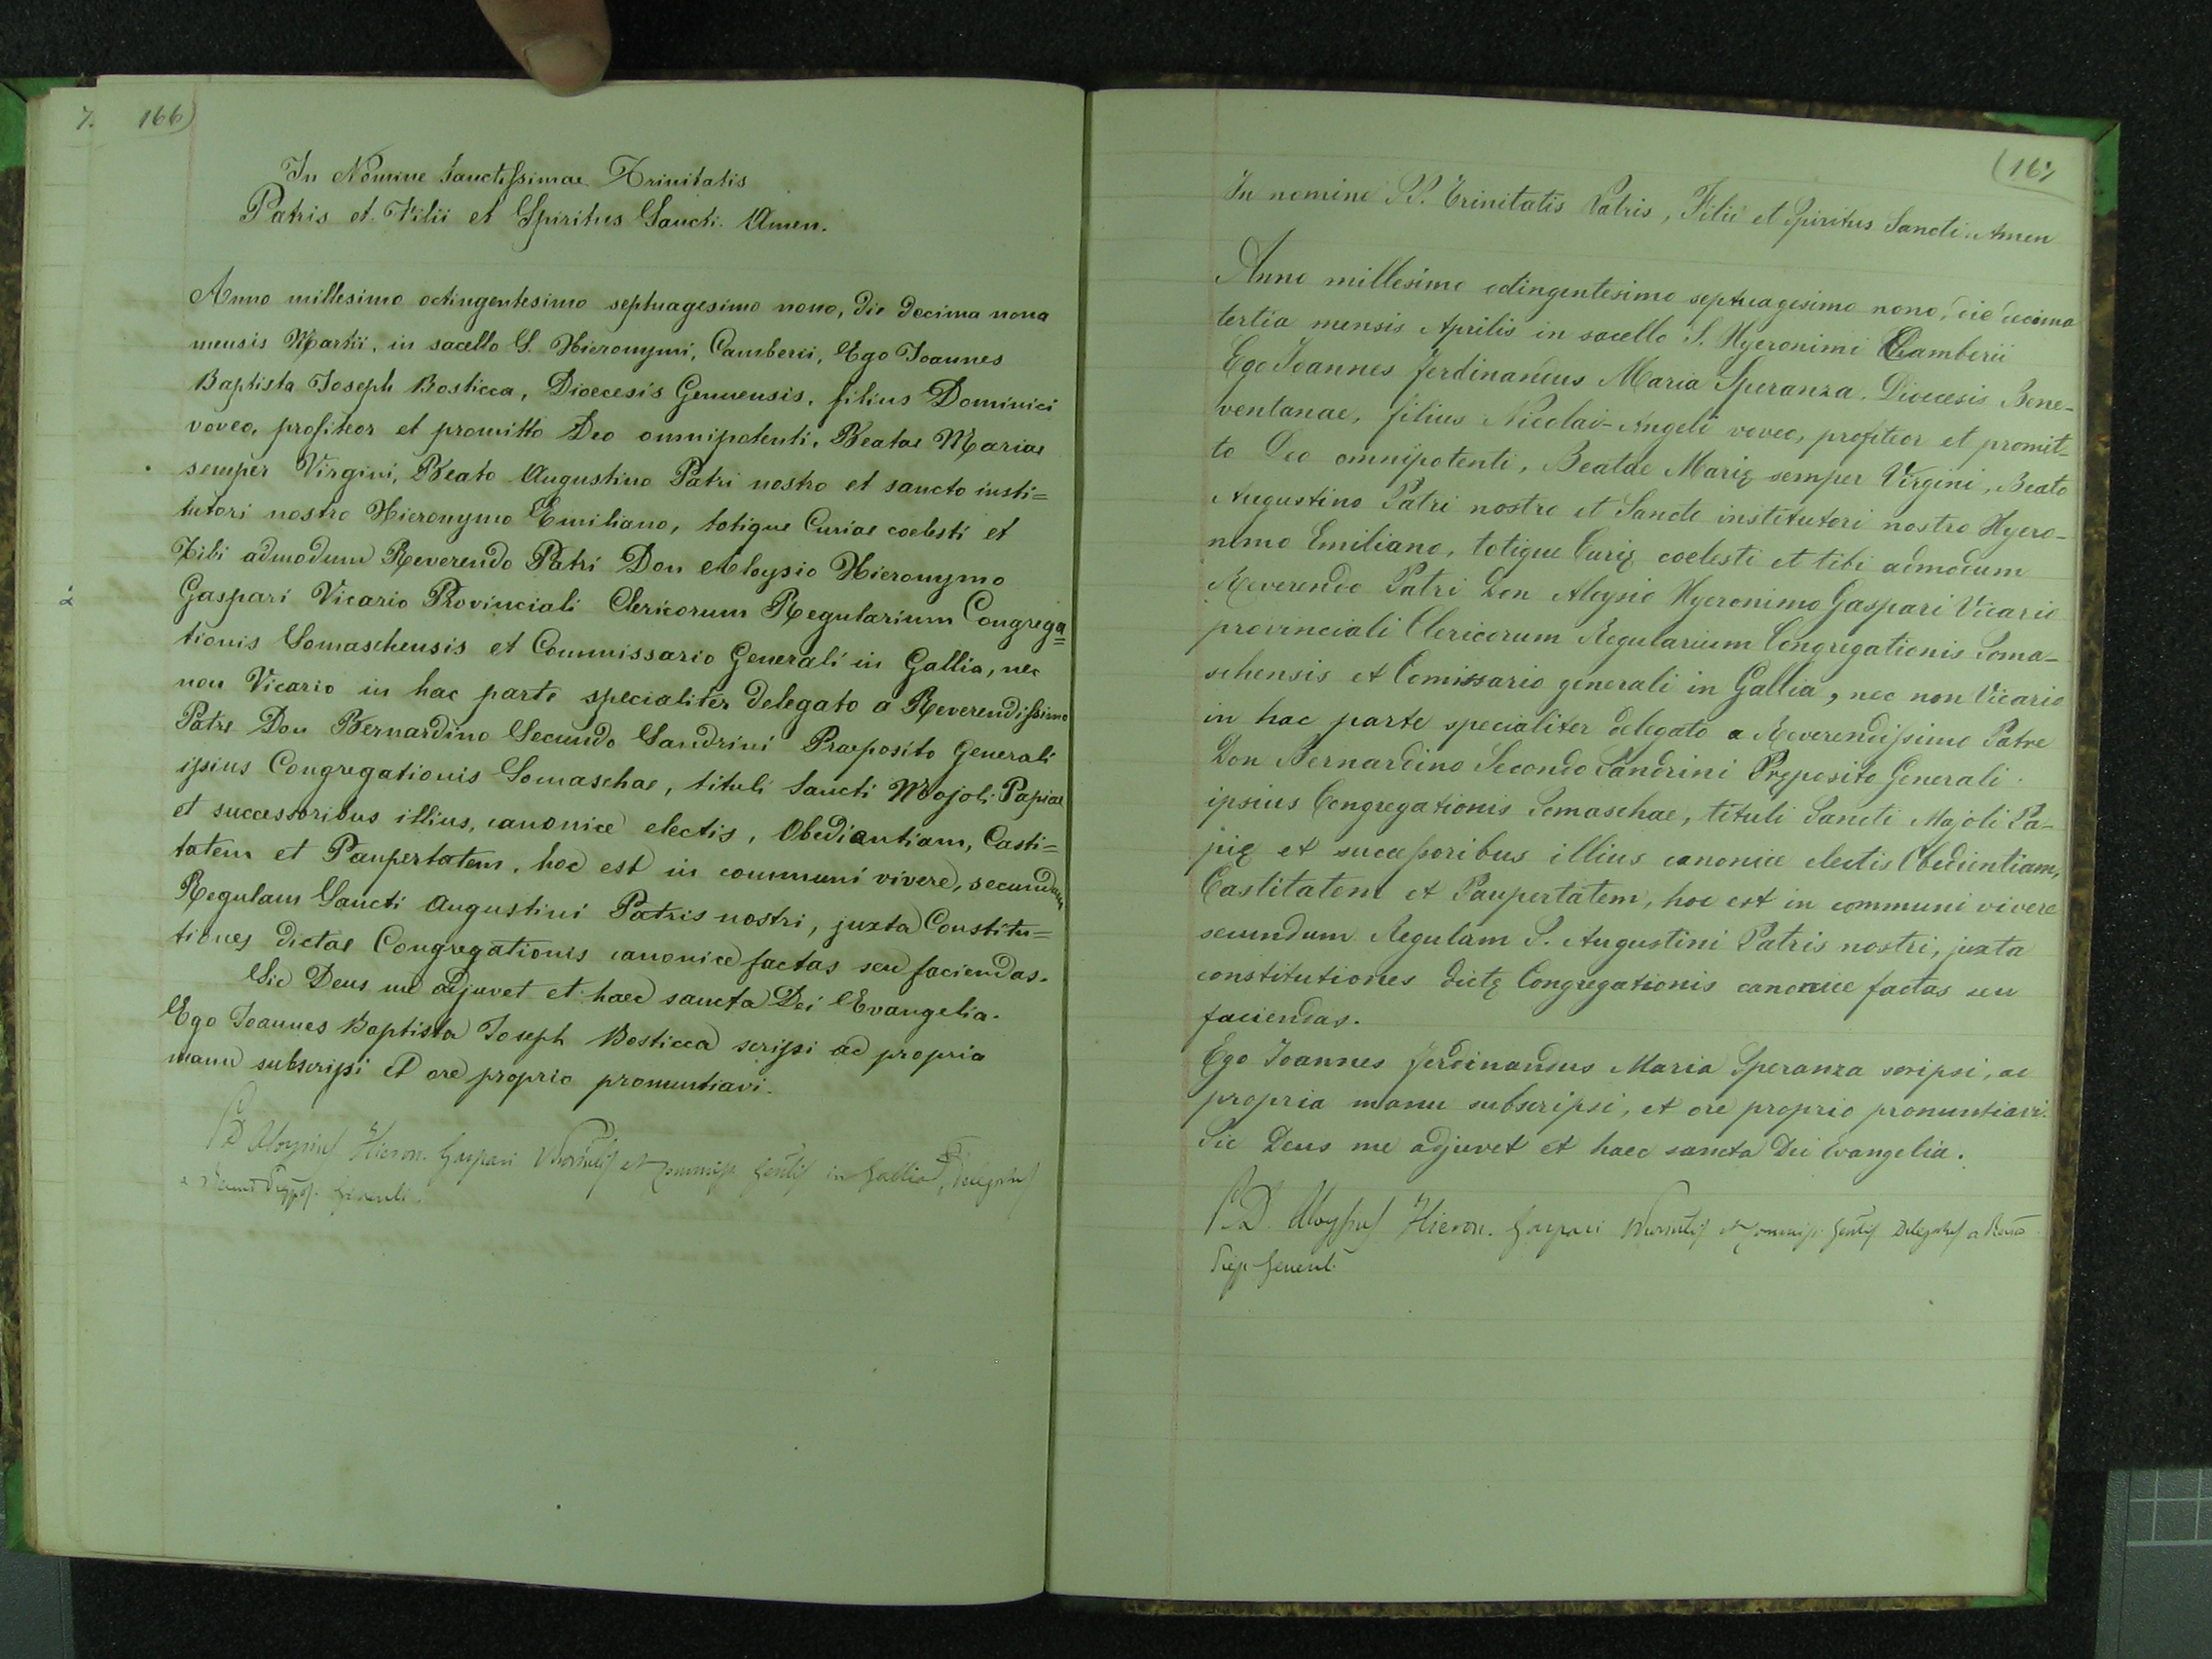 7. 166)
In Nomine Sanctissimae Trinitatis
Patris et Filii et Spiritus Sancti. Amen.
Anno millesimo octingentesimo septuagesimo nono, die decima nona
mensis Martii, in sacello S. Hieronymi, Camberii, Ego Joannes
Baptista Joseph Bosticca, Dioecesis Genuensis, filius Dominici
voveo, profiteor et promitto Deo omnipotenti, Beatae Mariae
semper Virgini, Beato Augustino Patri nostro et sancto insti=
tutori nostro Hieronymo Emiliano, totique Curiae coelesti et
Tibi admodum Reverendo Patri Don Aloysio Hieronymo
Gaspari Vicario Provinciali Clericorum Regularium Congrega=
tionis Somaschensis et Commissario Generali in Gallia, nec
non Vicario in hac parte specialiter delegato a Reverendissimo
Patre Don Bernardino Secundo Sandrini Praeposito Generali
ipsius Congregationis Somaschae, tituli Sancti Mojoli Papiae
et successoribus illius, canonice electis, Obediantiam, Casti=
tatem et Paupertatem, hoc est in communi vivere, secundum
Regulam Sancti Augustini Patris nostri, juxta Constitu=
tiones dictae Congregationis canonice factas seu faciendas.
Sic Deus me adjuvet et haec sancta Dei Evangelia.
Ego Joannes Baptista Joseph Bosticca scripsi ac propria
manu subscripsi et ore proprio pronuntiavi.
P. D. Aloysius Hieron. Gaspari et in Gallia, Delegatus
a
(167
In nomine SS. Trinitatis Patris, Filii et Spiritus Sancti. Amen
Anno millesimo octingentesimo septuagesimo nono, die decima
tertia mensis Aprilis in sacello S. Hyeronimi Camberii
Ego Joannes Ferdinandus Maria Speranza. Dioecesis Bene-
ventanae, filius Nicolai-Angeli voveo, profiteor et promit-
to Deo omnipotenti, Beatae Marię semper Virgini, Beato
Augustino Patri nostro et Sancto institutori nostro Hyero-
nimo Emiliano, totique Curię coelesti et tibi admodum
Reverendo Patri Don Aloysio Hyeronimo Gaspari Vicario
provinciali Clericorum Regularium Congregationis Soma-
schensis et Comissario generali in Gallia, nec non Vicario
in hac parte specialiter delegato a Reverendissimo Patre
Don Bernardino Secondo Sandrini Pręposito Generali
ipsius Congregationis Somaschae, tituli Sancti Majoli Pa-
pię et successoribus illius canonice electis Obedientiam,
Castitatem et Paupertatem, hoc est in communi vivere
secundum Regulam S. Augustini Patris nostri, juxta
constitutiones dictę Congregationis canonice factas seu
faciendas.
Ego Joannes Ferdinandus Maria Speranza scripsi, ac
propria manu subscripsi, et ore proprio pronuntiavi.
Sic Deus me adjuvet et haec sancta Dei Evangelia.
P. D. Aloysius Hieron. Gaspari et Delegatus a